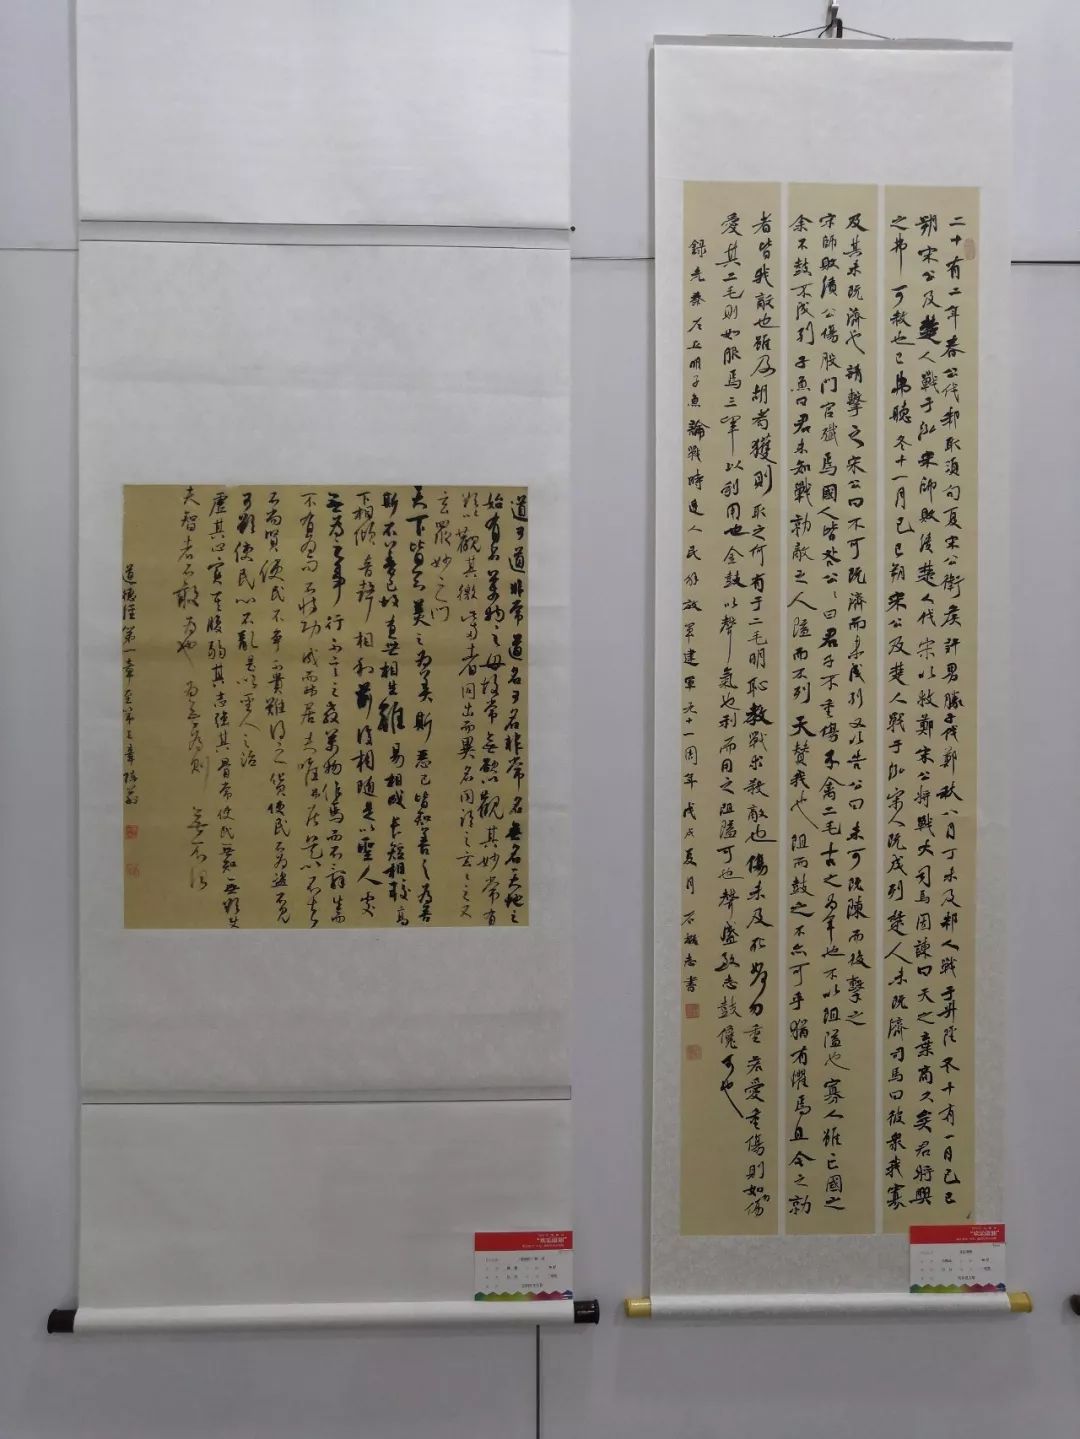 二十有二年春公伐邾取須句夏宋公衛侯許男滕子伐鄭秋八月丁未及邾人戰于升陘冬十有一月己巳
朔宋公及楚人戰于泓宋師敗後楚人伐宋以救鄭宋公將戰大司馬固諫曰天之棄商久矣君將興
之弗可赦也已弗聽冬十一月己巳朔宋公及楚人戰于泓宋人既成列楚人未既濟司馬曰彼衆我寡
及其未既濟也請擊之宋公曰不可既濟而未成列又以告公曰未可既陳而後擊之
宋師敗績公傷股門官殲焉國人皆咎公公曰君子不重傷不禽二毛古之為軍也不以阻隘也寡人雖亡國之
余不鼓不成列子魚曰君未知戰勍敵之人隘而不列天贊我也阻而鼓之不亦可乎猶有懼焉且今之勍
者皆我敵也雖及胡耇獲則取之何有于二毛明恥教戰求殺敵也傷未及死如何勿重若愛重傷則如勿傷
愛其二毛則如服焉三軍以利用也金鼓以聲氣也利而用之阻隘可也聲盛致志鼓儳可也
錄先秦左丘明子魚論戰時逢人民解放軍建軍九十一周年戊戌夏月石志書
道可道非常道名可名非常名無名天地之
始有名萬物之母故常無欲以觀其妙常有
欲以觀其徼此兩者同出而異名同謂之玄之又
玄眾妙之門
天下皆知美之為美斯惡已皆知善之為善
斯不善已故有無相生難易相成長短相較高
下相傾音聲相和前後相隨是以聖人處
無為之事行不言之教萬物作焉而不辭生而
不有為而不恃功成而弗居夫唯弗居是以不去
不尚賢使民不爭不貴難得之貨使民不為盜不見
可欲使民心不亂是以聖人之治
虛其心實其腹弱其志強其骨常使民無知無欲使
夫智者不敢為也為無為則無不治
道德經第一章至第三章